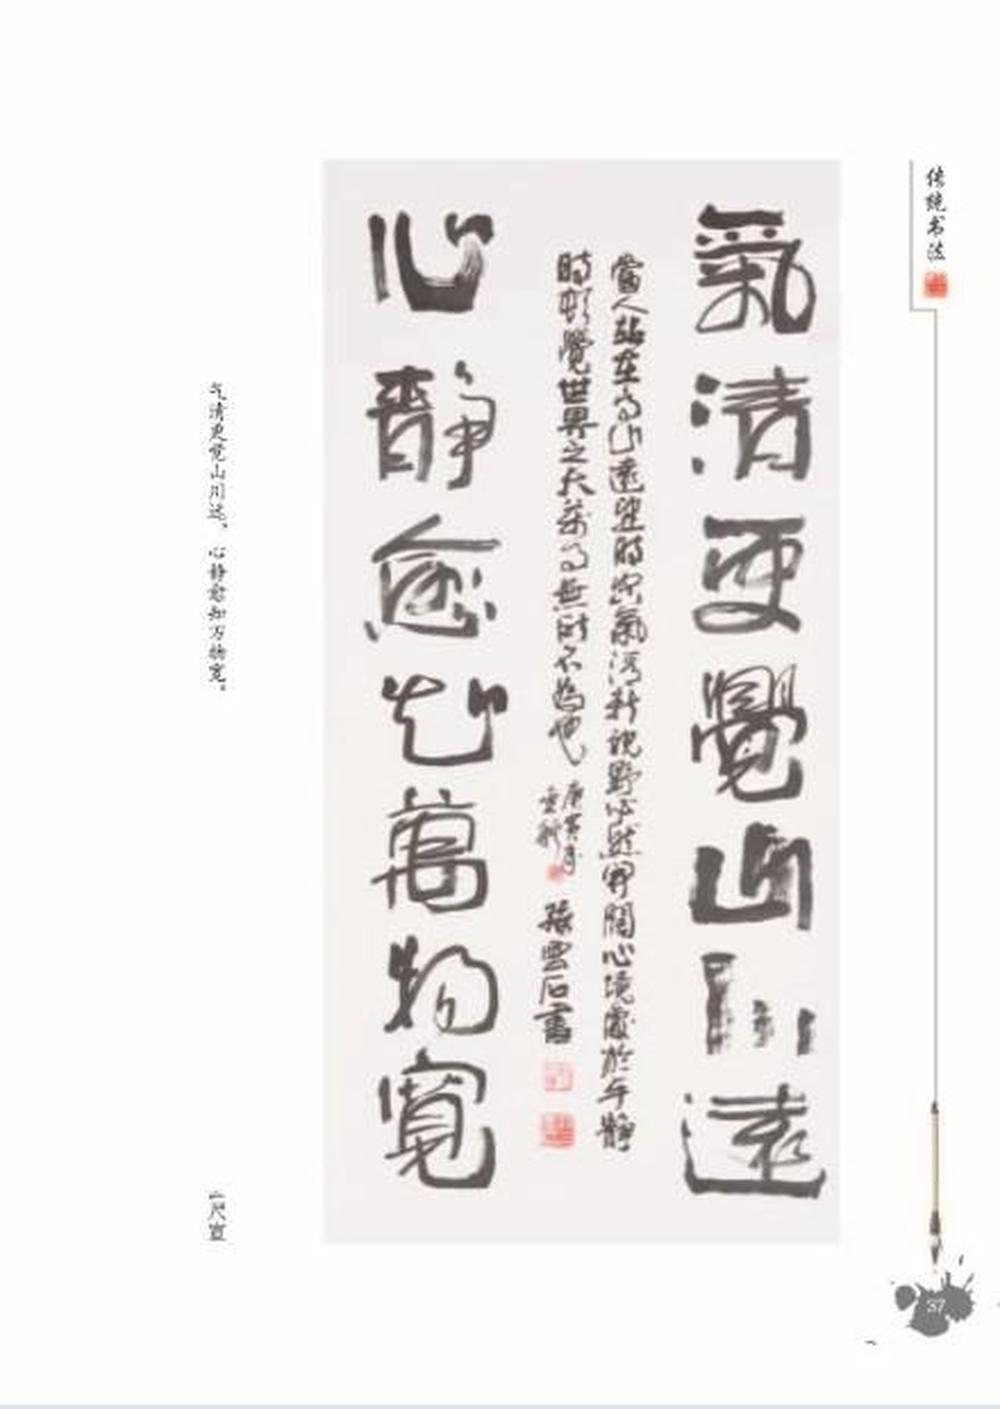 传统书法
氣清更覺山川遠
當人站在高山遠望時空氣清新視野必然開闊心境處於平靜
時頓覺世界之大萬物無所不為也
庚寅年
張雲石書
心靜愈知萬物寬
气清更觉山川远，心静愈知万物宽。
尺宣
37